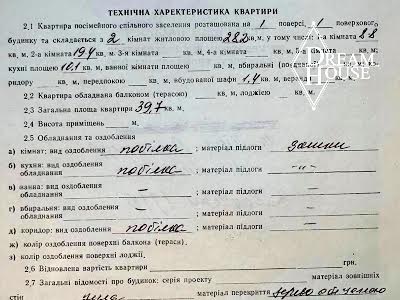 ТЕХНІЧНА ХАРАКТЕРИСТИКА КВАРТИРИ
2,1 Квартира посімейного спільного заселення розташована на 1 поверсі, 1 поверхового
будинку та складається з 2 кімнат житловою площею 28,2 кв, м, у тому числі: 1-а кімната 8,8
кв, м, 2-а кімната 19,4 кв, м, 3-я кімната кв, м, 4-а кімната кв, м, 5-а кімната кв, м;
кухні площею 10,1 кв, м, ванної кімнати кв, м, вбиральні кв, м,
коридору кв, м, передпокою кв, м, вбудованої шафи 1,4 кв, м, веранди кв, м,
2.2 Квартира обладнана балконом (терасою) кв, м, лоджією кв, м,
2.3 Загальна площа квартири 39,7 кв, м,
2.4 Висота приміщень м,
2.5 Обладнання та оздоблення
а) кімнат: вид оздоблення побілка ; матеріал підлоги дошки
б) кухня: вид оздоблення побілка ; матеріал підлоги -"-
обладнання
в) ванна: вид оздоблення — ; матеріал підлоги —
обладнання
г) вбиральня: вид оздоблення — ; матеріал підлоги —
д) коридор: вид оздоблення побілка ; матеріал підлоги -"-
ж) колір оздоблення поверхні балкона (тераси),
з) колір оздоблення поверхні лоджії,
2,6 Відновлена вартість квартири грн,
2,7 Загальні відомості про будинок: серія проекту матеріал зовнішніх
стін ; матеріал перекриття
DREAM
HOUSE